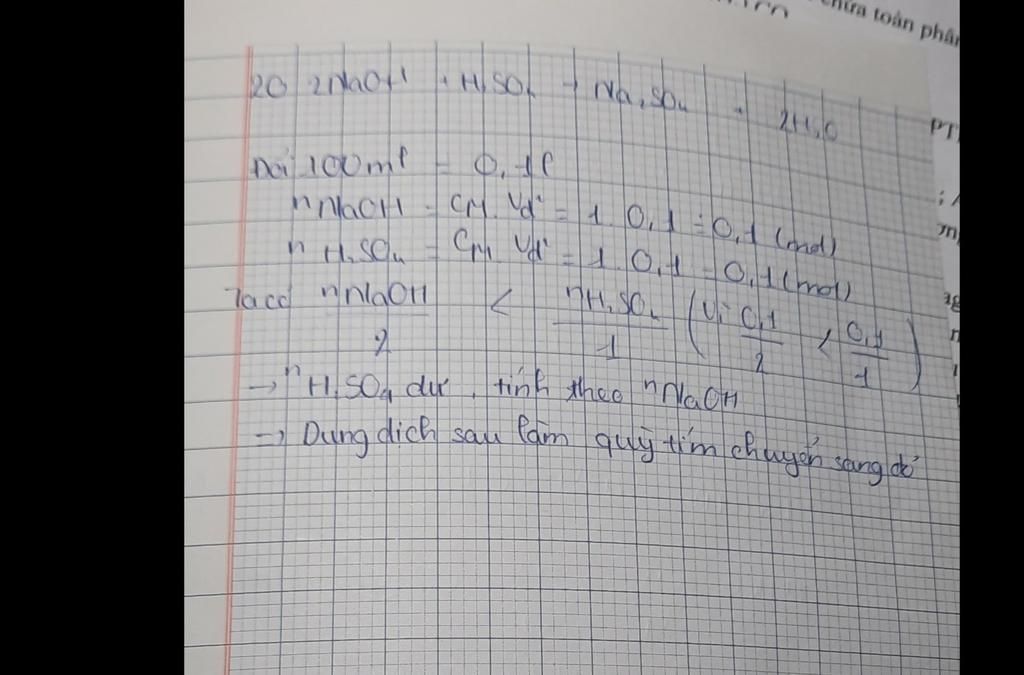 chứa toàn phần
20 2NaOH + H2SO4 → Na2SO4 + 2H2O
PT
Đổi 100ml = 0,1l
nNaOH = CM.Vd² = 1.0,1 = 0,1 (mol)
nH2SO4 = CM.Vd² = 1.0,1 = 0,1 (mol)
Ta có nNaOH/2 < nH2SO4/1 (Vì 0,1/2 < 0,1/1)
→ nH2SO4 dư, tính theo nNaOH
→ Dung dịch sau làm quỳ tím chuyển sang đỏ